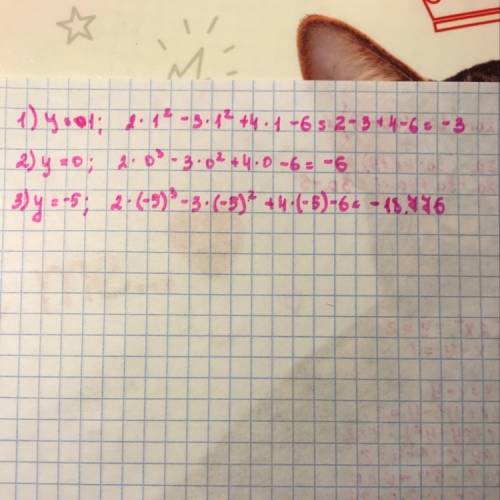 1) y = 1; 2 · 1² - 3 · 1² + 4 · 1 - 6 = 2 - 3 + 4 - 6 = -3
2) y = 0; 2 · 0³ - 3 · 0² + 4 · 0 - 6 = -6
3) y = -5; 2 · (-5)³ - 3 · (-5)² + 4 · (-5) - 6 = -18.776